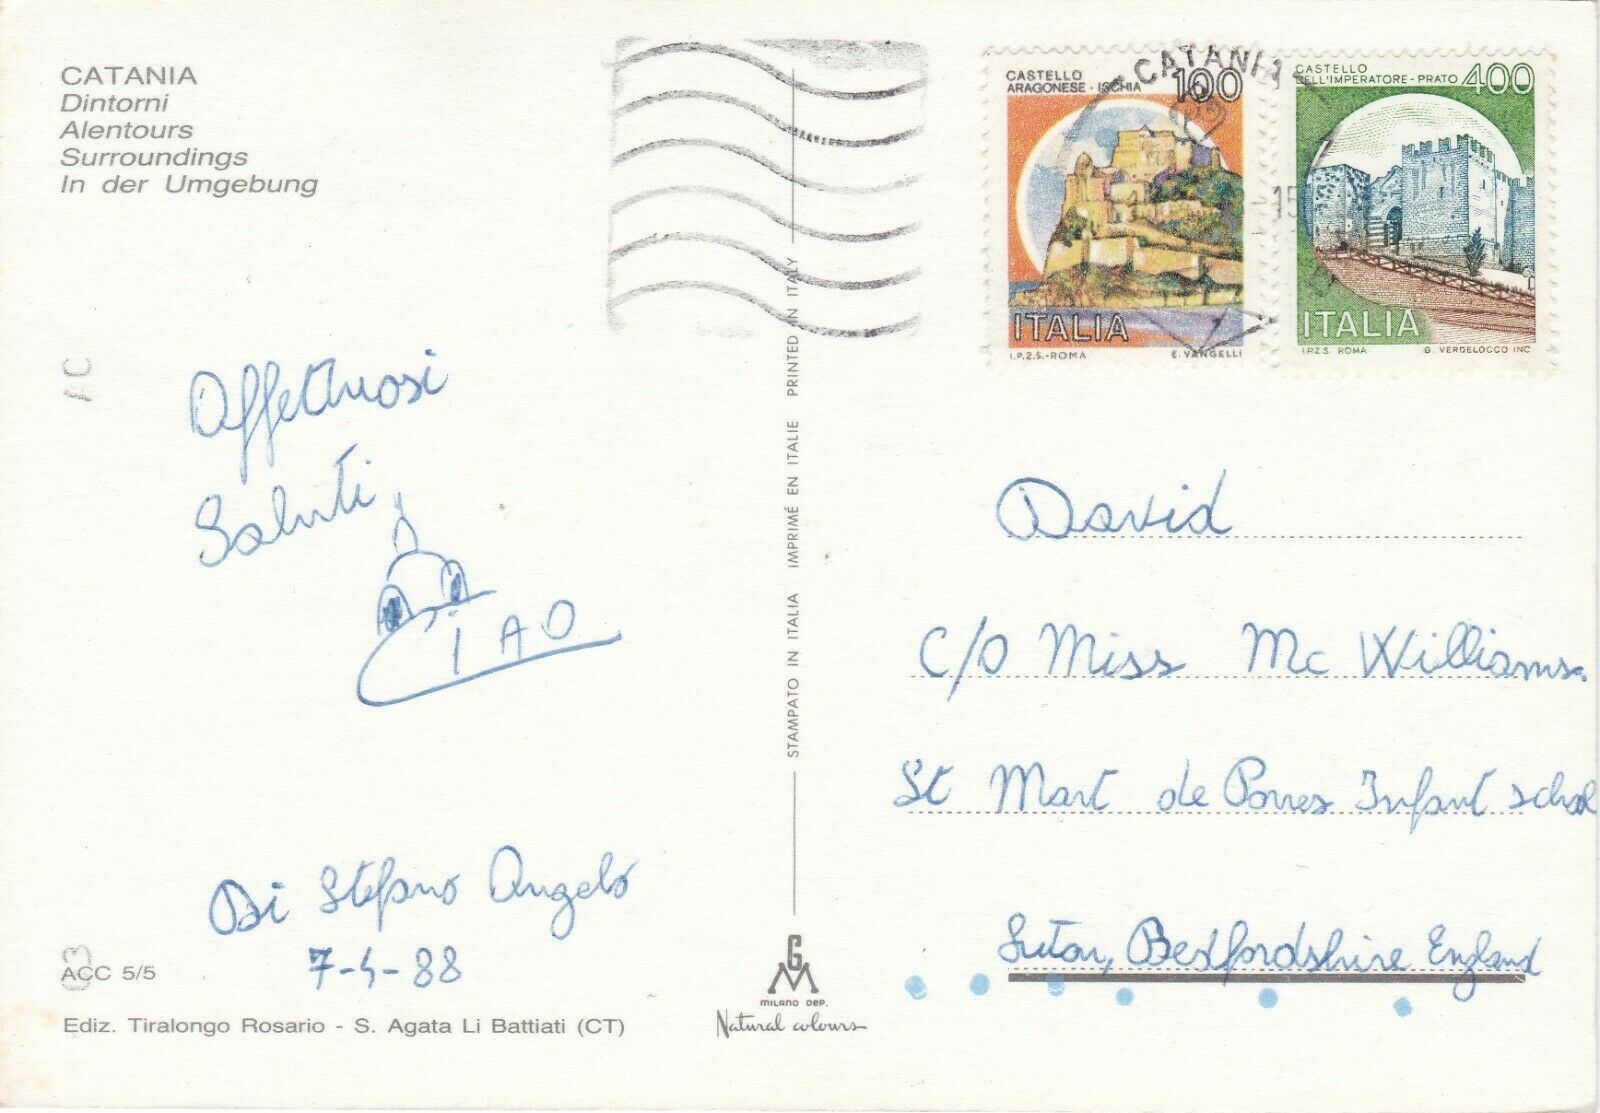 CATANIA
Dintorni
Alentours
Surroundings
In der Umgebung
Affettuosi
Saluti
CIAO
Di Stefano Angelo
7-4-88
ACC 5/5
Ediz. Tiralongo Rosario - S. Agata Li Battiati (CT)
STAMPATO IN ITALIA IMPRIMÉ EN ITALIE PRINTED IN ITALY
GM
MILANO DEP.
Natural colours
CATANIA
15
CASTELLO
ARAGONESE - ISCHIA
100
ITALIA
I.P.Z.S.-ROMA E. VANGELLI
CASTELLO
DELL'IMPERATORE - PRATO
400
ITALIA
I.P.Z.S. ROMA G. VERDELOCCO INC.
David
C/O Miss Mc Williams.
St Mart de Porres Infant school
Bedfordshire England
AC